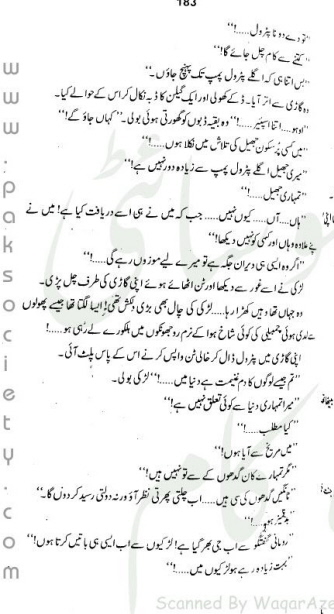 183
”تو دے دو نا پٹرول.....!‘‘
’’کتنے سے کام چل جائے گا!‘‘
’’بس اتنا ہی کہ اگلے پٹرول پمپ تک پہنچ جاؤں۔‘‘
وہ گاڑی سے اتر آیا۔ ڈکے کھولی اور ایک گیلن کا ڈبہ نکال کر اس کے حوالے کیا۔
’’اوہو.....اتنا اسپئیر.....!‘‘ وہ بقیہ ڈبوں کو گھورتی ہوئی بولی۔’’کہاں جاؤ گے!‘‘
’’میں کسی پُرسکون جھیل کی تلاش میں نکلا ہوں.....!‘‘
’’میری جھیل اگلے پٹرول پمپ سے زیادہ دور نہیں ہے!‘‘
’’تمہاری جھیل.....!‘‘
’’ہاں.....آں.....کیوں نہیں..... جب کہ میں نے ہی اسے دریافت کیا ہے! میں نے
اپنے علاوہ وہاں اور کسی کو نہیں دیکھا!‘‘
’’اگر وہ ایسی ہی ویران جگہ ہے تو میرے لیے موزوں رہے گی.....!‘‘
لڑکی نے اسے غور سے دیکھا اور ٹن اٹھائے ہوئے اپنی گاڑی کی طرف چل پڑی۔
وہ جہاں تھا وہیں کھڑا رہا.....لڑکی کی چال بھی بڑی دلکش تھی! ایسا لگتا تھا جیسے پھولوں
سے لدی ہوئی چمبیلی کی کوئی شاخ ہوا کے نرم رو جھونکوں میں ہلکورے لے رہی ہو.....!
اپنی گاڑی میں پٹرول ڈال کر خالی ٹن واپس کرنے اس کے پاس پلٹ آئی۔
’’تم جیسے لوگوں کا دم غنیمت ہے دنیا میں.....!‘‘ لڑکی بولی۔
’’میرا تمہاری دنیا سے کوئی تعلق نہیں ہے!‘‘
’’کیا مطلب.....!‘‘
’’میں مریخ سے آیا ہوں!‘‘
’’مگر تمہارے کان گدھوں کے سے تو نہیں ہیں!‘‘
’’ٹانگیں گدھوں کی سی ہیں.....اب چلتی پھرتی نظر آؤ ورنہ دولتی رسید کر دوں گا۔‘‘
’’بدتمیز ہو.....!‘‘
’’رومانی گفتگو سے اب جی بھر گیا ہے! لڑکیوں سے اب ایسی ہی باتیں کرتا ہوں!‘‘
’’بہت زیادہ رہے ہو لڑکیوں میں.....!‘‘
www.paksociety.com
Scanned By WaqarAze